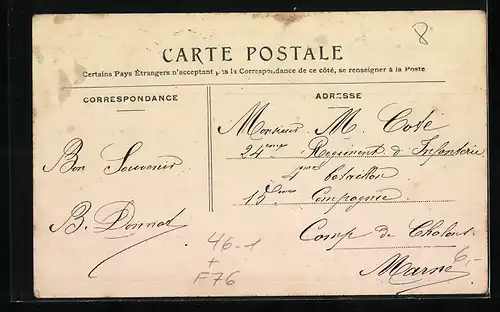 8
CARTE POSTALE
Certains Pays Étrangers n'acceptant pas la Correspondance de ce côté, se renseigner à la Poste
CORRESPONDANCE
ADRESSE
Bon Souvenir
B. Donnat
Monsieur M. Coté
24eme Régiment d'Infanterie
4eme bataillon
15eme Compagnie
Camp de Chalons
Marne
46-1
+
F76
6,-